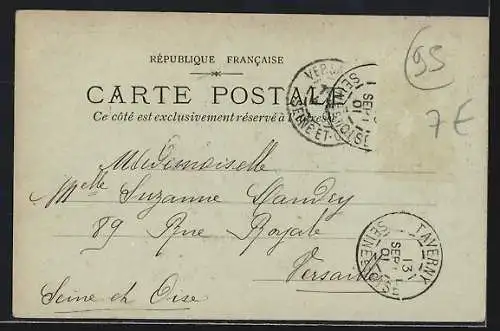 RÉPUBLIQUE FRANÇAISE
CARTE POSTALE
Ce côté est exclusivement réservé à l'adresse
95
7 €
Mademoiselle
Melle Suzanne
89 Rue Royale
Versailles
Seine et Oise
TAVERNY
13
SEPT
01
SEINE-ET-OISE
SEPT
01
SEINE-ET-OISE